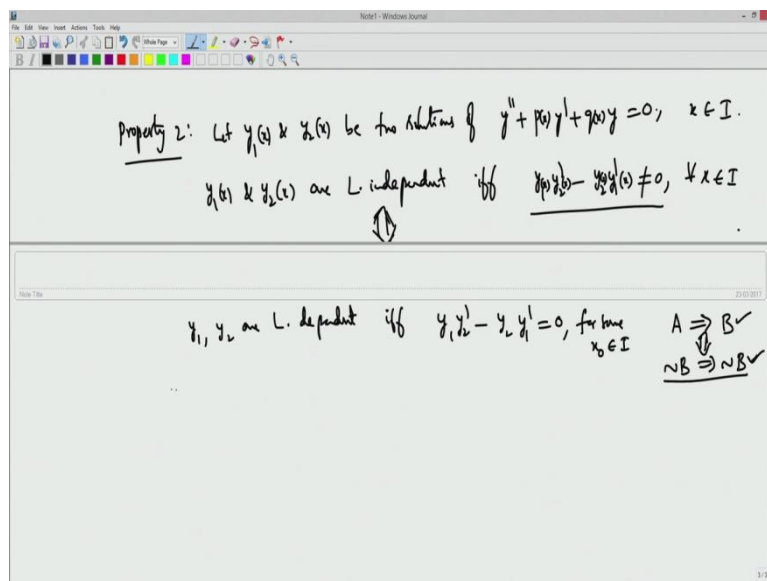 Note1 - Windows Journal
File Edit View Insert Actions Tools Help
Whole Page
B I
Property 2: Let y₁(x) & y₂(x) be two solutions of y'' + p(x) y' + q(x) y = 0, x ∈ I.
y₁(x) & y₂(x) are L. independent iff y₁(x) y₂'(x) - y₂(x) y₁'(x) ≠ 0, ∀ x ∈ I
⇕
Note Title
23-03-2017
y₁, y₂ are L. dependent iff y₁ y₂' - y₂ y₁' = 0, for some x₀ ∈ I
A ⇒ B ✓
⇕
~B ⇒ ~B ✓
3/3